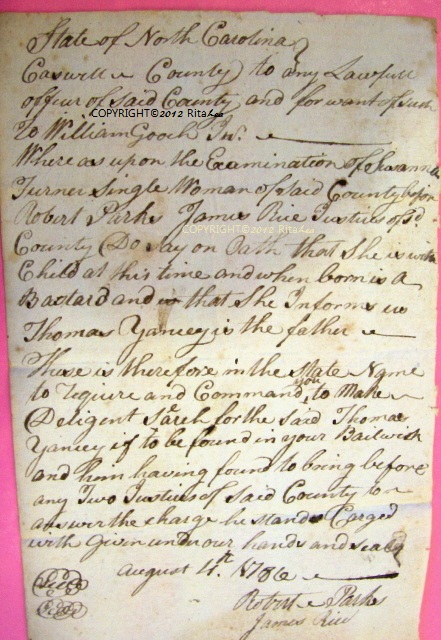 State of North Carolina
Caswell County) to any Lawfull
officer of said County and for want of such
COPYRIGHT©2012 RitaLee
To William Gooch Jnr.
Where as upon the Examination of Susanna
Turner Single Woman of said County before
Robert Parks James Rice Justices of sd
COPYRIGHT©2012 RitaLee
County (Do say on Oath that She is with
Child at this time and when born is a
Bastard and that She Informs us
Thomas Yancey is the father
These is therefore in the State Name
to require and Command you to Make
Deligent Sarch for the said Thomas
Yancey if to be found in your Bailwick
and him having found to bring before
any Two Justices of said County to
answer the charge he stands Carged
with Given under our hands and seals
August 4th 1786
Robert Parks
James Rice